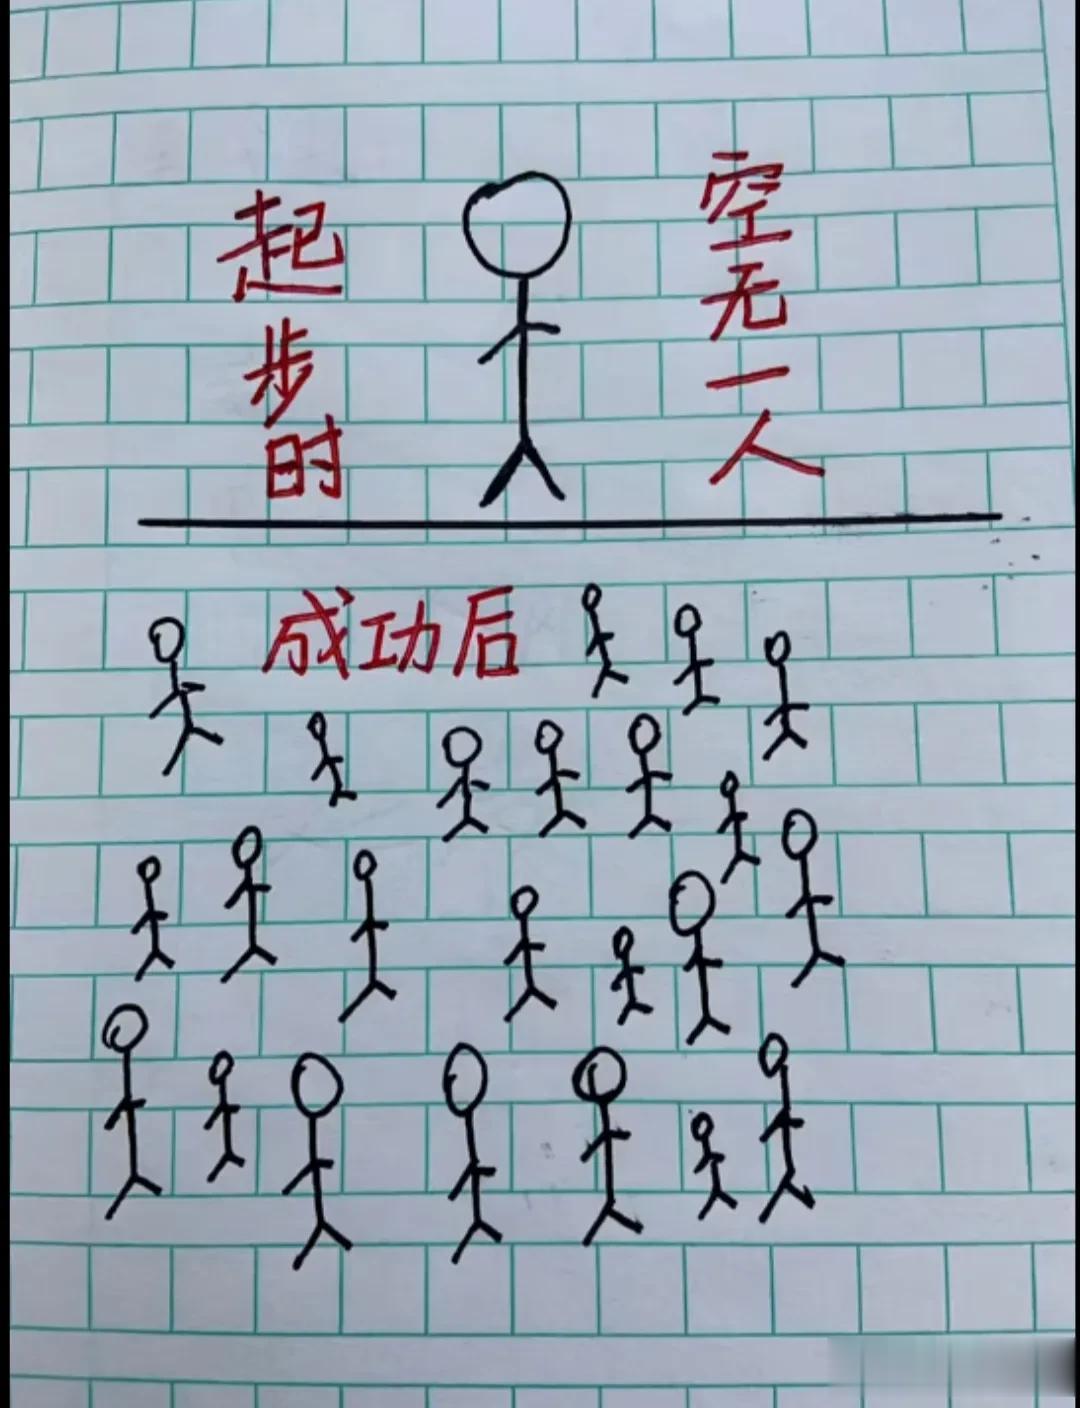 起步时
空无一人
成功后